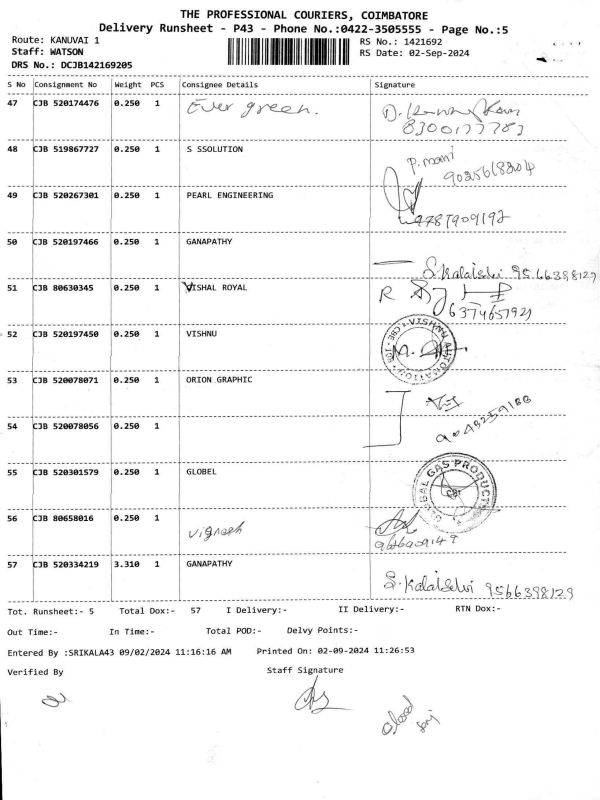 THE PROFESSIONAL COURIERS, COIMBATORE
Delivery Runsheet - P43 - Phone No.:0422-3505555 - Page No.:5
Route: KANUVAI 1
RS No.: 1421692
Staff: WATSON
RS Date: 02-Sep-2024
DRS No.: DCJB142169205
S No Consignment No Weight PCS Consignee Details Signature
47 CJB 520174476 0.250 1 Ever green.
8300177783
48 CJB 519867727 0.250 1 S SSOLUTION
P. mani
9025618204
49 CJB 520267301 0.250 1 PEARL ENGINEERING
9787909192
50 CJB 520197466 0.250 1 GANAPATHY
S. Kalaiselvi 9566398129
51 CJB 80630345 0.250 1 VISHAL ROYAL
6374657921
52 CJB 520197450 0.250 1 VISHNU
VISHNU AUTOMATION
53 CJB 520078071 0.250 1 ORION GRAPHIC
54 CJB 520078056 0.250 1
9048259188
55 CJB 520301579 0.250 1 GLOBEL
GLOBAL GAS PRODUCTS
CBE
56 CJB 80658016 0.250 1 Vignesh
57 CJB 520334219 3.310 1 GANAPATHY
S. Kalaiselvi 9566398129
Tot. Runsheet:- 5 Total Dox:- 57 I Delivery:- II Delivery:- RTN Dox:-
Out Time:- In Time:- Total POD:- Delvy Points:-
Entered By :SRIKALA43 09/02/2024 11:16:16 AM Printed On: 02-09-2024 11:26:53
Verified By Staff Signature